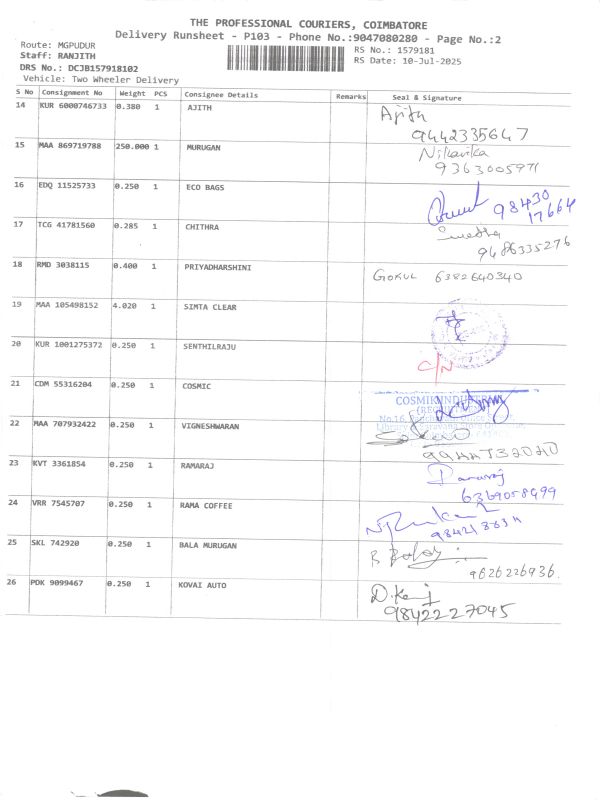 THE PROFESSIONAL COURIERS, COIMBATORE
Delivery Runsheet - P103 - Phone No.:9047080280 - Page No.:2
Route: MGPUDUR
Staff: RANJITH
DRS No.: DCJB157918102
Vehicle: Two Wheeler Delivery
RS No.: 1579181
RS Date: 10-Jul-2025
S No Consignment No Weight PCS Consignee Details Remarks Seal & Signature
14 KUR 6000746733 0.380 1 AJITH Ajith
9442335647
15 MAA 869719788 250.000 1 MURUGAN
9363005971
16 EDQ 11525733 0.250 1 ECO BAGS 98430
17664
17 TCG 41781560 0.285 1 CHITHRA
9486335276
18 RMD 3038115 0.400 1 PRIYADHARSHINI GOKUL 6382640340
19 MAA 105498152 4.020 1 SIMTA CLEAR
20 KUR 1001275372 0.250 1 SENTHILRAJU C/N
21 CDM 55316204 0.250 1 COSMIC
22 MAA 707932422 0.250 1 VIGNESHWARAN
23 KVT 3361854 0.250 1 RAMARAJ Ramaraj
6369058499
24 VRR 7545707 0.250 1 RAMA COFFEE
25 SKL 742920 0.250 1 BALA MURUGAN
9626226936
26 PDK 9099467 0.250 1 KOVAI AUTO
9842227045